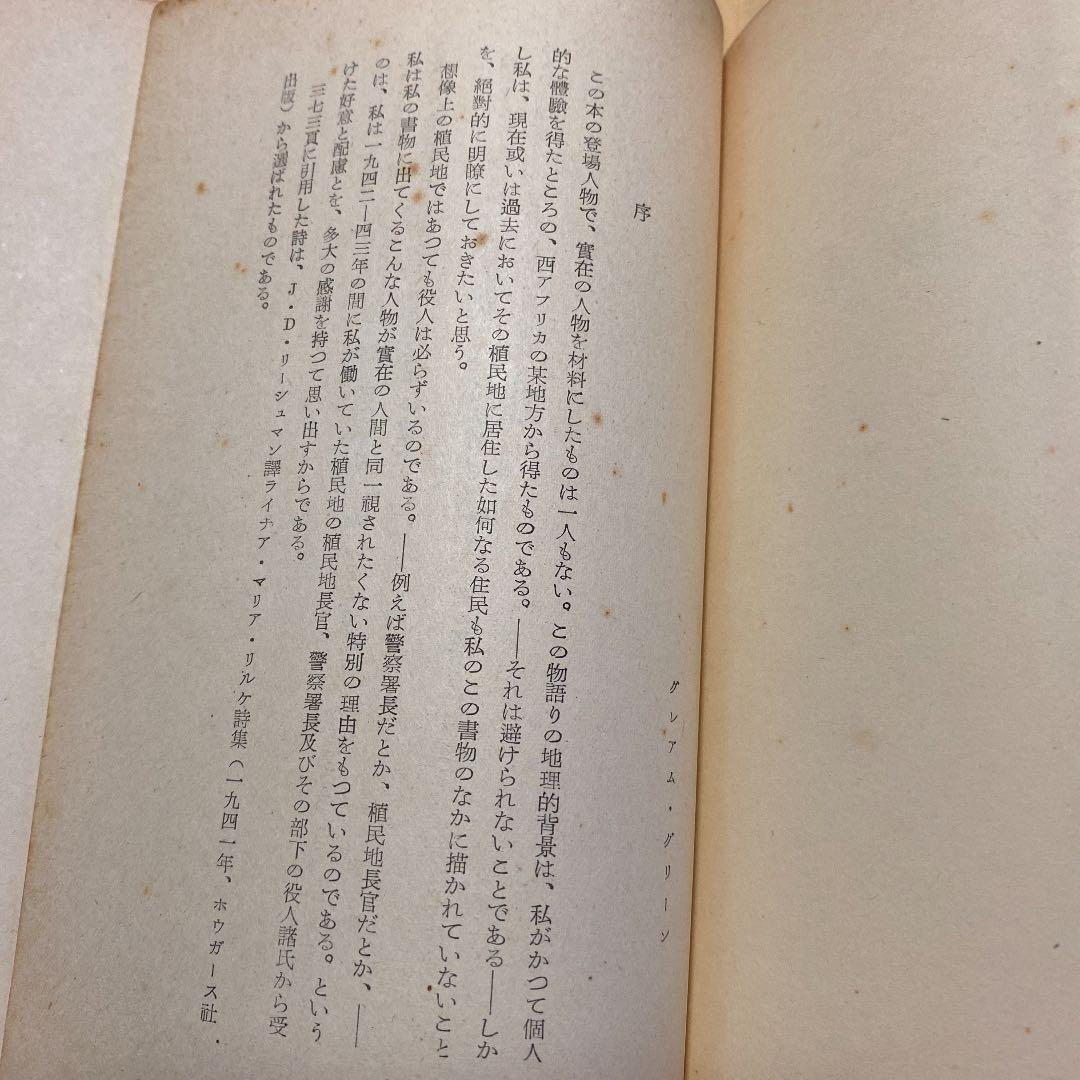 序
グレアム・グリーン
この本の登場人物で、實在の人物を材料にしたものは一人もない。この物語りの地理的背景は、私がかつて個人
的な體驗を得たところの、西アフリカの某地方から得たものである。――それは避けられないことである――しか
し私は、現在或いは過去においてその植民地に居住した如何なる住民も私のこの書物のなかに描かれていないこと
を、絕對的に明瞭にしておきたいと思う。
想像上の植民地ではあつても役人は必らずいるのである。――例えば警察署長だとか、植民地長官だとか、――
私は私の書物に出てくるこんな人物が實在の人間と同一視されたくない特別の理由をもつているのである。という
のは、私は一九四二―四三年の間に私が働いていた植民地の植民地長官、警察署長及びその部下の役人諸氏から受
けた好意と配慮とを、多大の感謝を持つて思い出すからである。
三七三頁に引用した詩は、J・D・リーシュマン譯ライナア・マリア・リルケ詩集（一九四一年、ホウガース社・
出版）から選ばれたものである。